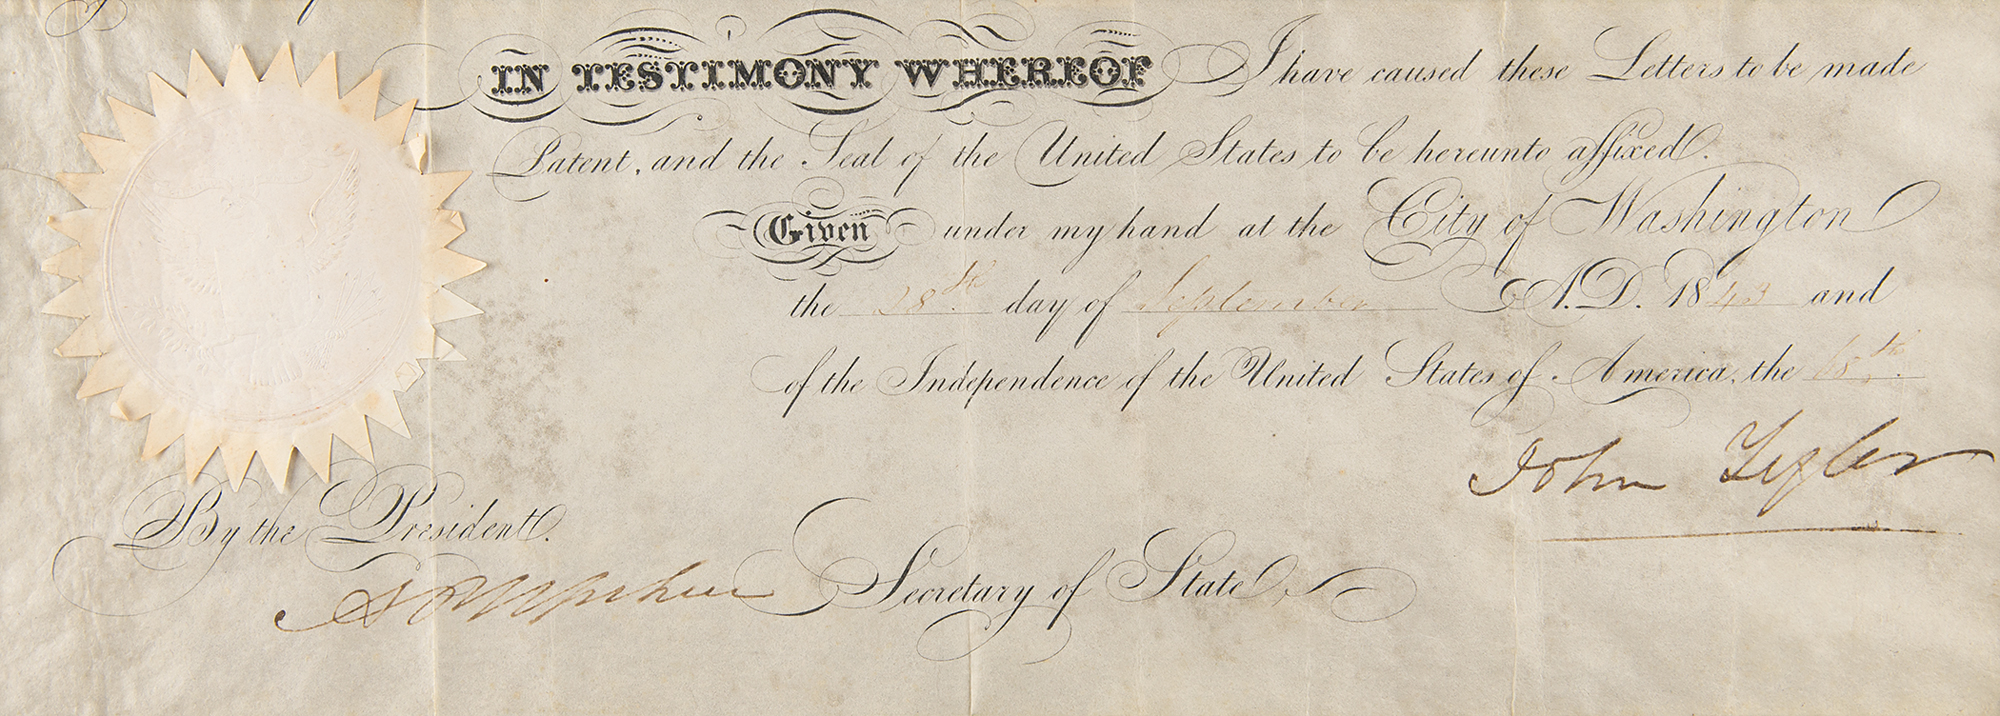 IN TESTIMONY WHEREOF I have caused these Letters to be made
Patent, and the Seal of the United States to be hereunto affixed.
Given under my hand at the City of Washington
the 28th day of September A.D. 1843 and
of the Independence of the United States of America, the 68th.
John Tyler
By the President.
A P Upshur Secretary of State.